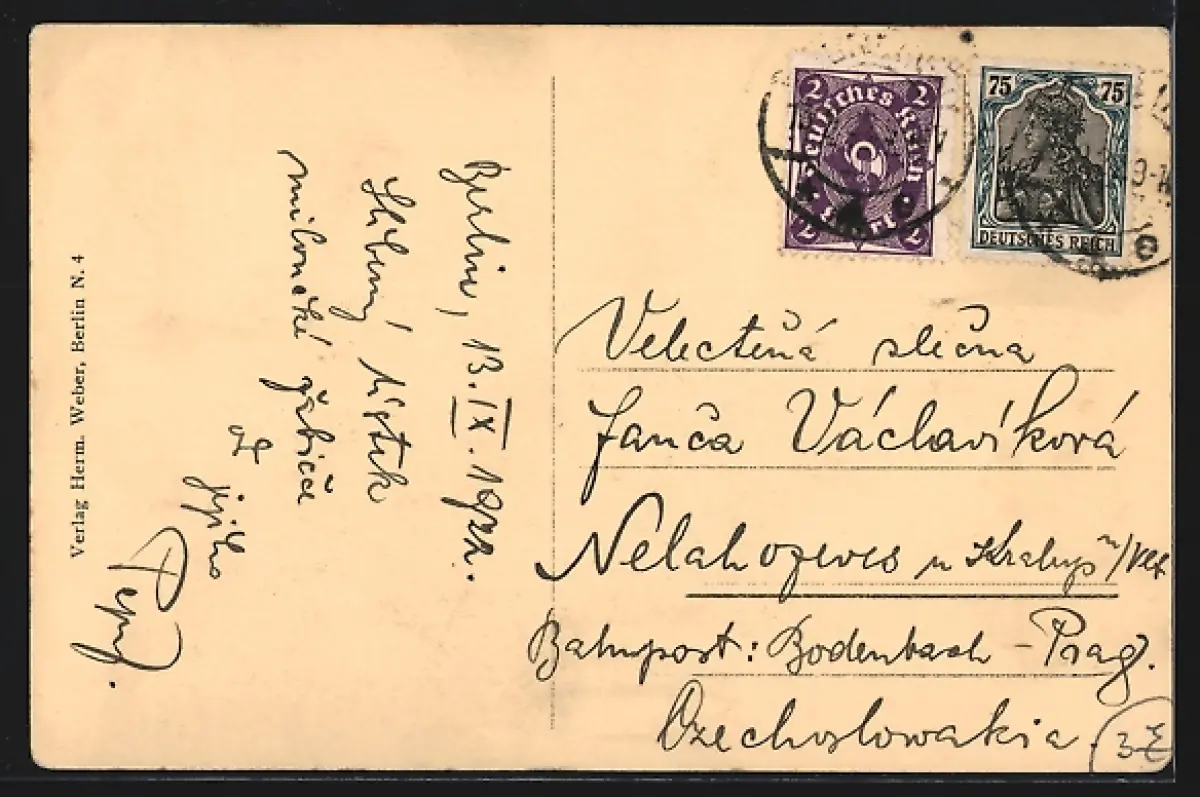 Verlag Herm. Weber, Berlin N. 4
Berlin, 13. IX. 1922.
Slíbený lístek
milounké žabičce
od
jejího
Pepy.
2 2
Deutsches Reich
2 Mark 2
75 75
DEUTSCHES REICH
Velectěná slečna
Janča Václavíková
Nelahozeves u Kralup n/Vlt
Bahnpost: Bodenbach – Prag.
Czechoslowakia.